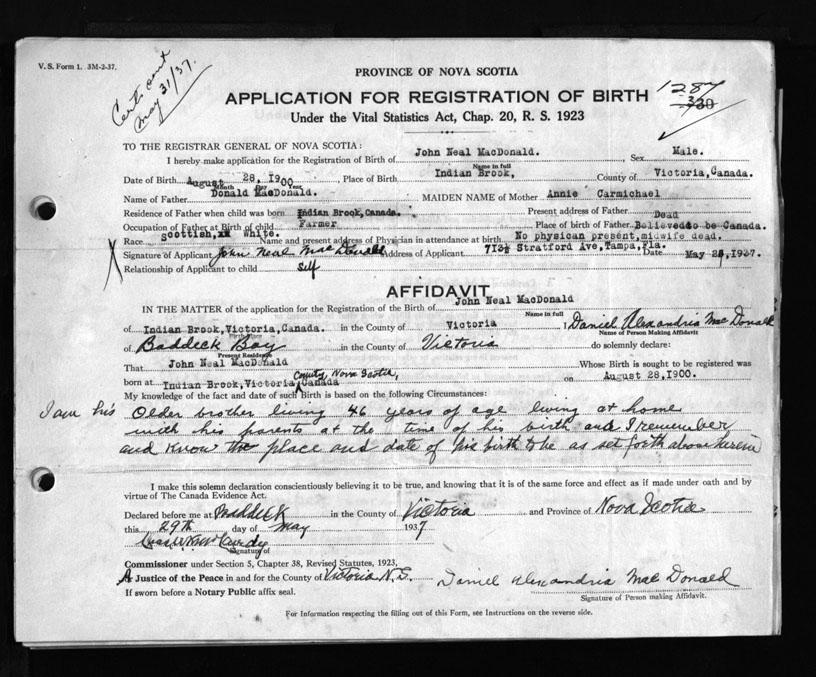 V. S. Form 1. 3M-2-37.
Cert sent
May 31/37.
PROVINCE OF NOVA SCOTIA
APPLICATION FOR REGISTRATION OF BIRTH
1287
Under the Vital Statistics Act, Chap. 20, R. S. 1923
TO THE REGISTRAR GENERAL OF NOVA SCOTIA:
I hereby make application for the Registration of Birth of John Neal MacDonald. Sex Male.
Name in full
Date of Birth August 28, 1900 Place of Birth Indian Brook, County of Victoria, Canada.
Month Day Year
Name of Father Donald MacDonald. MAIDEN NAME of Mother Annie Carmichael
Residence of Father when child was born Indian Brook, Canada. Present address of Father Dead
Occupation of Father at Birth of child Farmer Place of birth of Father Believed to be Canada.
Race Scottish, White. Name and present address of Physician in attendance at birth No physican present, midwife dead.
Signature of Applicant John Neal MacDonald Address of Applicant 713½ Stratford Ave, Tampa, Fla. Date May 1937.
Relationship of Applicant to child Self
AFFIDAVIT
IN THE MATTER of the application for the Registration of Birth of John Neal MacDonald
Name in full
of Indian Brook, Victoria, Canada. in the County of Victoria I Daniel Alexandria MacDonald
Name of Person Making Affidavit
of Baddeck Bay in the County of Victoria do solemnly declare:
Present Residence
That John Neal MacDonald Whose Birth is sought to be registered was
born at Indian Brook, Victoria County, Nova Scotia, Canada on August 28, 1900.
My knowledge of the fact and date of such Birth is based on the following Circumstances:
I am his Older brother living 46 years of age living at home
with his parents at the time of his birth and I remember
and know the place and date of his birth to be as set forth above herein
I make this solemn declaration conscientiously believing it to be true, and knowing that it is of the same force and effect as if made under oath and by
virtue of The Canada Evidence Act.
Declared before me at Baddeck in the County of Victoria and Province of Nova Scotia
this 29th day of May 1937
Signature of
Commissioner under Section 5, Chapter 38, Revised Statutes, 1923,
A Justice of the Peace in and for the County of Victoria N.S. Daniel Alexandria MacDonald
If sworn before a Notary Public affix seal. Signature of Person making Affidavit.
For Information respecting the filling out of this Form, see Instructions on the reverse side.